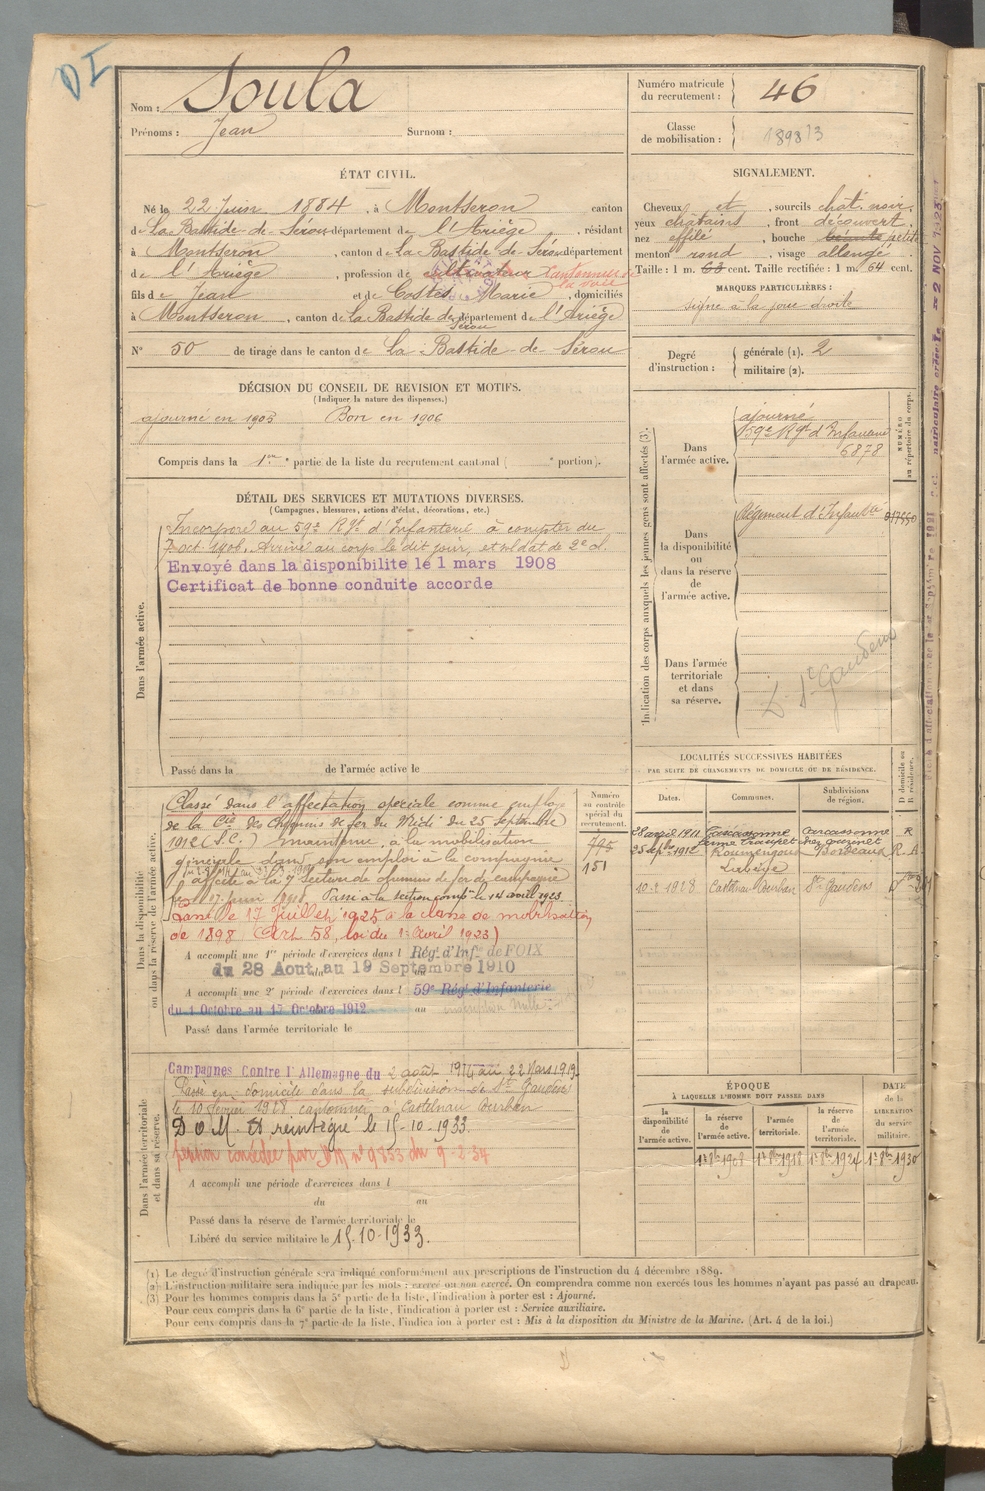 DI
Nom : Soula
Prénoms : Jean Surnom :
Numéro matricule
du recrutement : 46
Classe
de mobilisation : 1898
ÉTAT CIVIL.
Né le 22 Juin 1884, à Montseron canton
de La Bastide-de-Sérou département de l'Ariège, résidant
à Montseron, canton de La Bastide-de-Sérou département
de l'Ariège, profession de cultivateur cantonnier de
la voie
fils de Jean et de Costes Marie, domiciliés
à Montseron, canton de La Bastide de Sérou département de l'Ariège
N° 50 de tirage dans le canton de La Bastide-de-Sérou
SIGNALEMENT.
Cheveux et, sourcils chât. noir,
yeux châtains, front découvert,
nez effilé, bouche petite
menton rond, visage allongé
Taille : 1 m. 63 cent. Taille rectifiée : 1 m. 64 cent.
MARQUES PARTICULIÈRES :
signe à la joue droite
Degré
d'instruction : générale (1). 2
militaire (2).
DÉCISION DU CONSEIL DE REVISION ET MOTIFS.
(Indiquer la nature des dispenses.)
ajourné en 1905 Bon en 1906
Compris dans la 1ère partie de la liste du recrutement cantonal ( e portion).
DÉTAIL DES SERVICES ET MUTATIONS DIVERSES.
(Campagnes, blessures, actions d'éclat, décorations, etc.)
Dans l'armée active.
Incorporé au 59e Rgt d'Infanterie à compter du
7 oct. 1906. Arrivé au corps le dit jour, et soldat de 2e cl.
Envoyé dans la disponibilite le 1 mars 1908
Certificat de bonne conduite accorde
Passé dans la de l'armée active le
Indication des corps auxquels les jeunes gens sont affectés (3).
NUMÉRO
au répertoire du corps.
Dans
l'armée active.
ajourné
59e Rgt d'Infanterie
6878
Dans
la disponibilité
ou
dans la réserve
de
l'armée active.
Régiment d'Infanterie
Dans l'armée
territoriale
et dans
sa réserve.
St Gaudens
LOCALITÉS SUCCESSIVES HABITÉES
PAR SUITE DE CHANGEMENTS DE DOMICILE OU DE RÉSIDENCE.
Dates. Communes. Subdivisions
de région.
D domicile ou
R résidence.
28 avril 1911 Carcassonne Carcassonne R
25 Septbre 1912 Bordeaux R.A.
10-2 1928 Castelnau-Durban St Gaudens D
Dans la disponibilité
ou dans la réserve de l'armée active.
Numéro
au contrôle
spécial du
recrutement.
151
Classé dans l'affectation spéciale comme employé
de la Cie des Chemins de fer du Midi du 25 septembre
1912 (S.C.) maintenu à la mobilisation
générale dans son emploi à la compagnie
affecté à la 7e Section de chemins de fer de campagne
Passé à la section compl. le 14 avril 1923
Passé le 17 Juillet 1925 à la classe de mobilisation
de 1898 (Art 58, loi du 1er Avril 1923)
A accompli une 1re période d'exercices dans l Rég. d'Inf. de FOIX
du 28 Aout au 19 Septembre 1910
A accompli une 2e période d'exercices dans l 59e Rég. d'Infanterie
du 1 Octobre au 17 Octobre 1912 au inscription nulle
Passé dans l'armée territoriale le
Dans l'armée territoriale
et dans sa réserve.
Campagnes Contre l'Allemagne du 2 août 1914 au 22 Mars 1919
Passé en domicile dans la subdivision de St Gaudens
le 10 février 1928 cantonnier à Castelnau Durban
D o M. Et reintégré le 15-10-1933
pension concédée par DM n° 9853 du 9-2-34
A accompli une période d'exercices dans l
du au
Passé dans la réserve de l'armée territoriale le
Libéré du service militaire le 15-10-1933.
ÉPOQUE
À LAQUELLE L'HOMME DOIT PASSER DANS
la
disponibilité
de
l'armée active.
la réserve
de
l'armée active.
l'armée
territoriale.
la réserve
de
l'armée
territoriale.
DATE
de la
LIBÉRATION
du service
militaire.
1er 8bre 1908 1er 8bre 1918 1er 8bre 1924 1er 8bre 1930
(1) Le degré d'instruction générale sera indiqué conformément aux prescriptions de l'instruction du 4 décembre 1889.
(2) L'instruction militaire sera indiquée par les mots : exercé ou non exercé. On comprendra comme non exercés tous les hommes n'ayant pas passé au drapeau.
(3) Pour les hommes compris dans la 5e partie de la liste, l'indication à porter est : Ajourné.
Pour ceux compris dans la 6e partie de la liste, l'indication à porter est : Service auxiliaire.
Pour ceux compris dans la 7e partie de la liste, l'indication à porter est : Mis à la disposition du Ministre de la Marine. (Art. 4 de la loi.)